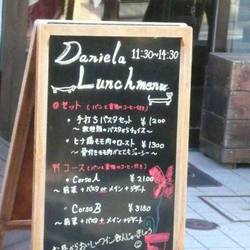 Daniela 11:30~14:30
Lunch menu
セット (パンと食後のコーヒー付き)
・手打ちパスタセット ¥1200
~ 数種類のパスタからチョイス ~
・ヒナ鶏モモ肉のロースト ¥1300
~ 骨付きモモ肉が
コース (パンと食後のコーヒー付き)
・Corso A ¥2100
~ 前菜 + パスタ or メイン + デザート
・Corso B ¥3150
~ 前菜 + パスタ + メイン + デザート